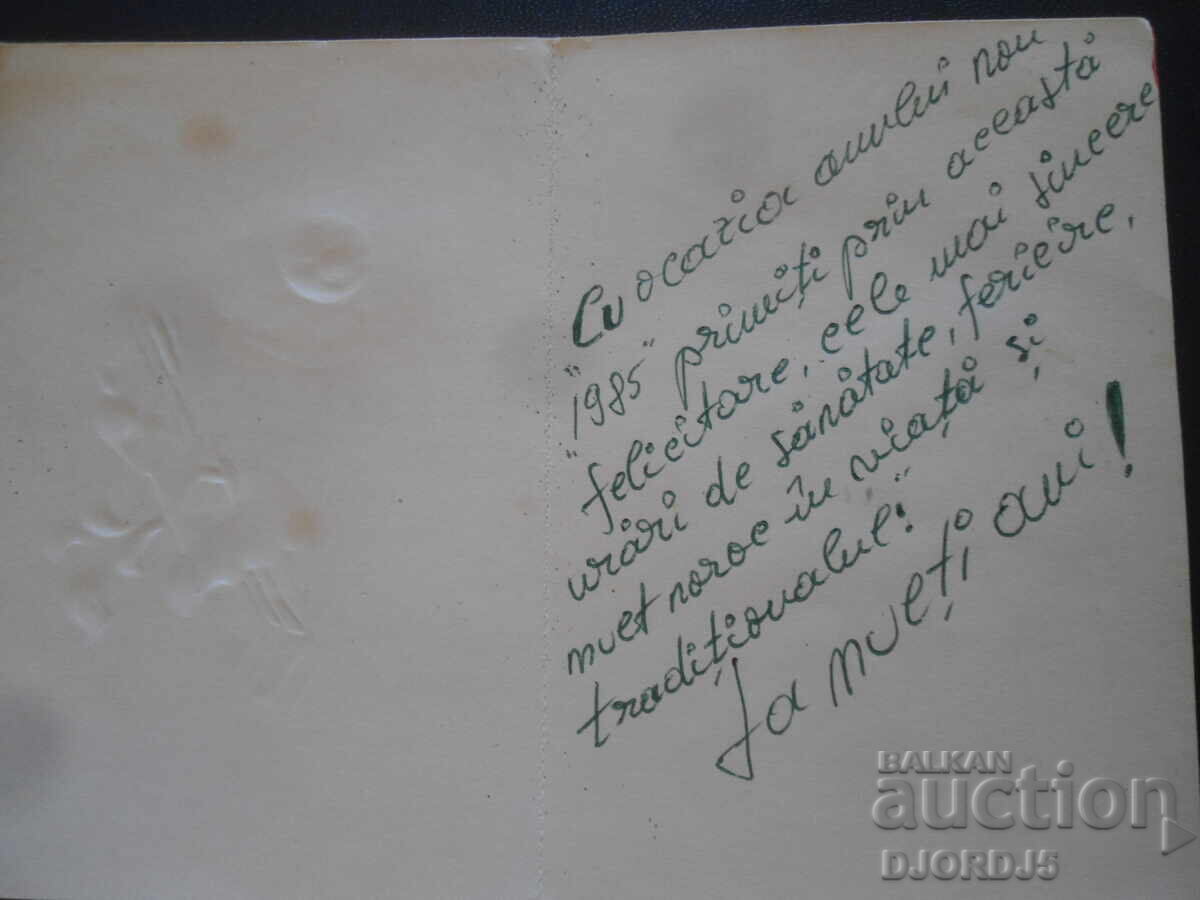 Cu ocazia anului nou
"1985" primiți prin această
felicitare, cele mai sincere
urări de sănătate, fericire,
mult noroc în viață și
tradiționalul:"
La mulți ani!
BALKAN
auction
DJORDJ5